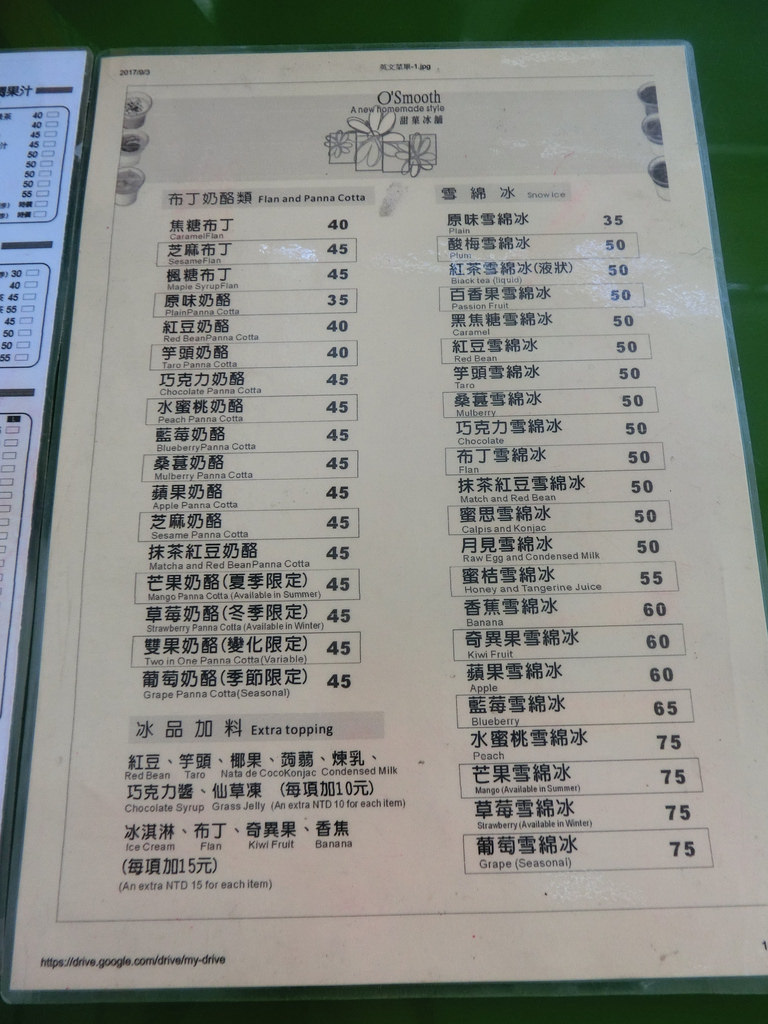 2017/9/3
英文菜單-1.jpg
O'Smooth
A new homemade style
甜菓冰舖
布丁奶酪類 Flan and Panna Cotta
焦糖布丁 40
CaramelFlan
芝麻布丁 45
SesameFlan
楓糖布丁 45
Maple SyrupFlan
原味奶酪 35
PlainPanna Cotta
紅豆奶酪 40
Red BeanPanna Cotta
竽頭奶酪 40
Taro Panna Cotta
巧克力奶酪 45
Chocolate Panna Cotta
水蜜桃奶酪 45
Peach Panna Cotta
藍莓奶酪 45
BlueberryPanna Cotta
桑葚奶酪 45
Mulberry Panna Cotta
蘋果奶酪 45
Apple Panna Cotta
芝麻奶酪 45
Sesame Panna Cotta
抹茶紅豆奶酪 45
Matcha and Red BeanPanna Cotta
芒果奶酪(夏季限定) 45
Mango Panna Cotta (Available in Summer)
草莓奶酪(冬季限定) 45
Strawberry Panna Cotta (Available in Winter)
雙果奶酪(變化限定) 45
Two in One Panna Cotta(Variable)
葡萄奶酪(季節限定) 45
Grape Panna Cotta(Seasonal)
冰品加料 Extra topping
紅豆、竽頭、椰果、蒟蒻、煉乳、
Red Bean Taro Nata de CocoKonjac Condensed Milk
巧克力醬、仙草凍 (每項加10元)
Chocolate Syrup Grass Jelly (An extra NTD 10 for each item)
冰淇淋、布丁、奇異果、香焦
Ice Cream Flan Kiwi Fruit Banana
(每項加15元)
(An extra NTD 15 for each item)
雪綿冰 Snow Ice
原味雪綿冰 35
Plain
酸梅雪綿冰 50
Plum
紅茶雪綿冰(液狀) 50
Black tea (liquid)
百香果雪綿冰 50
Passion Fruit
黑焦糖雪綿冰 50
Caramel
紅豆雪綿冰 50
Red Bean
竽頭雪綿冰 50
Taro
桑葚雪綿冰 50
Mulberry
巧克力雪綿冰 50
Chocolate
布丁雪綿冰 50
Flan
抹茶紅豆雪綿冰 50
Match and Red Bean
蜜思雪綿冰 50
Calpis and Konjac
月見雪綿冰 50
Raw Egg and Condensed Milk
蜜桔雪綿冰 55
Honey and Tangerine Juice
香蕉雪綿冰 60
Banana
奇異果雪綿冰 60
Kiwi Fruit
蘋果雪綿冰 60
Apple
藍莓雪綿冰 65
Blueberry
水蜜桃雪綿冰 75
Peach
芒果雪綿冰 75
Mango (Available in Summer)
草莓雪綿冰 75
Strawberry (Available in Winter)
葡萄雪綿冰 75
Grape (Seasonal)
https://drive.google.com/drive/my-drive
果汁
40
40
45
50
50
50
50
55
時價
時價
30
40
45
55
45
50
50
55